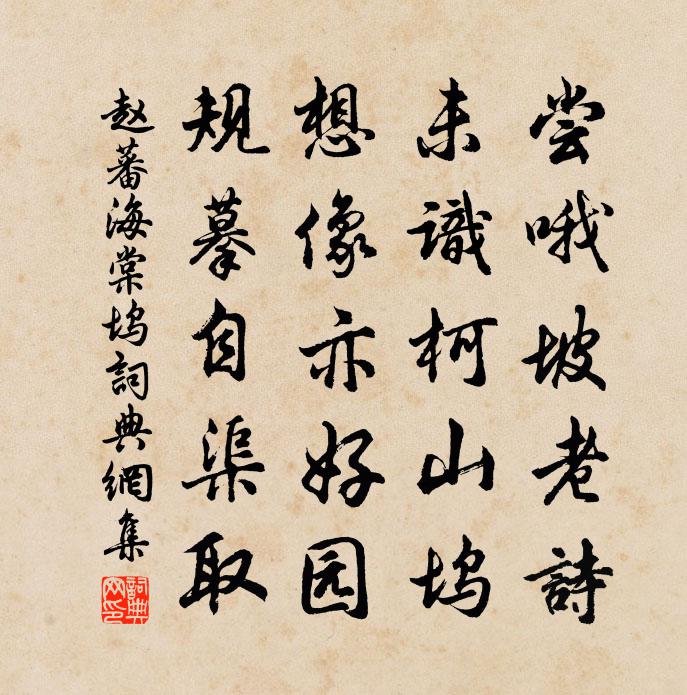 尝哦坡老詩
未識柯山坞
想像亦好园
规摹自渠取
赵蕃海棠坞詞典網集
詞典网印